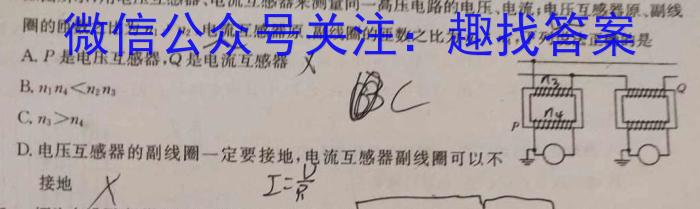 电流互感器来测量同一高压电路的电压、电流;电压互感器原、副线
圈的
微信公众号关注:趣找答案
A. P 是电压互感器,Q 是电流互感器 X
B. n₁n₄<n₂n₃
BC
C. n₃>n₄
D. 电压互感器的副线圈一定要接地,电流互感器副线圈可以不
接地 X
I=U/R
n₃
n₄
P
Q